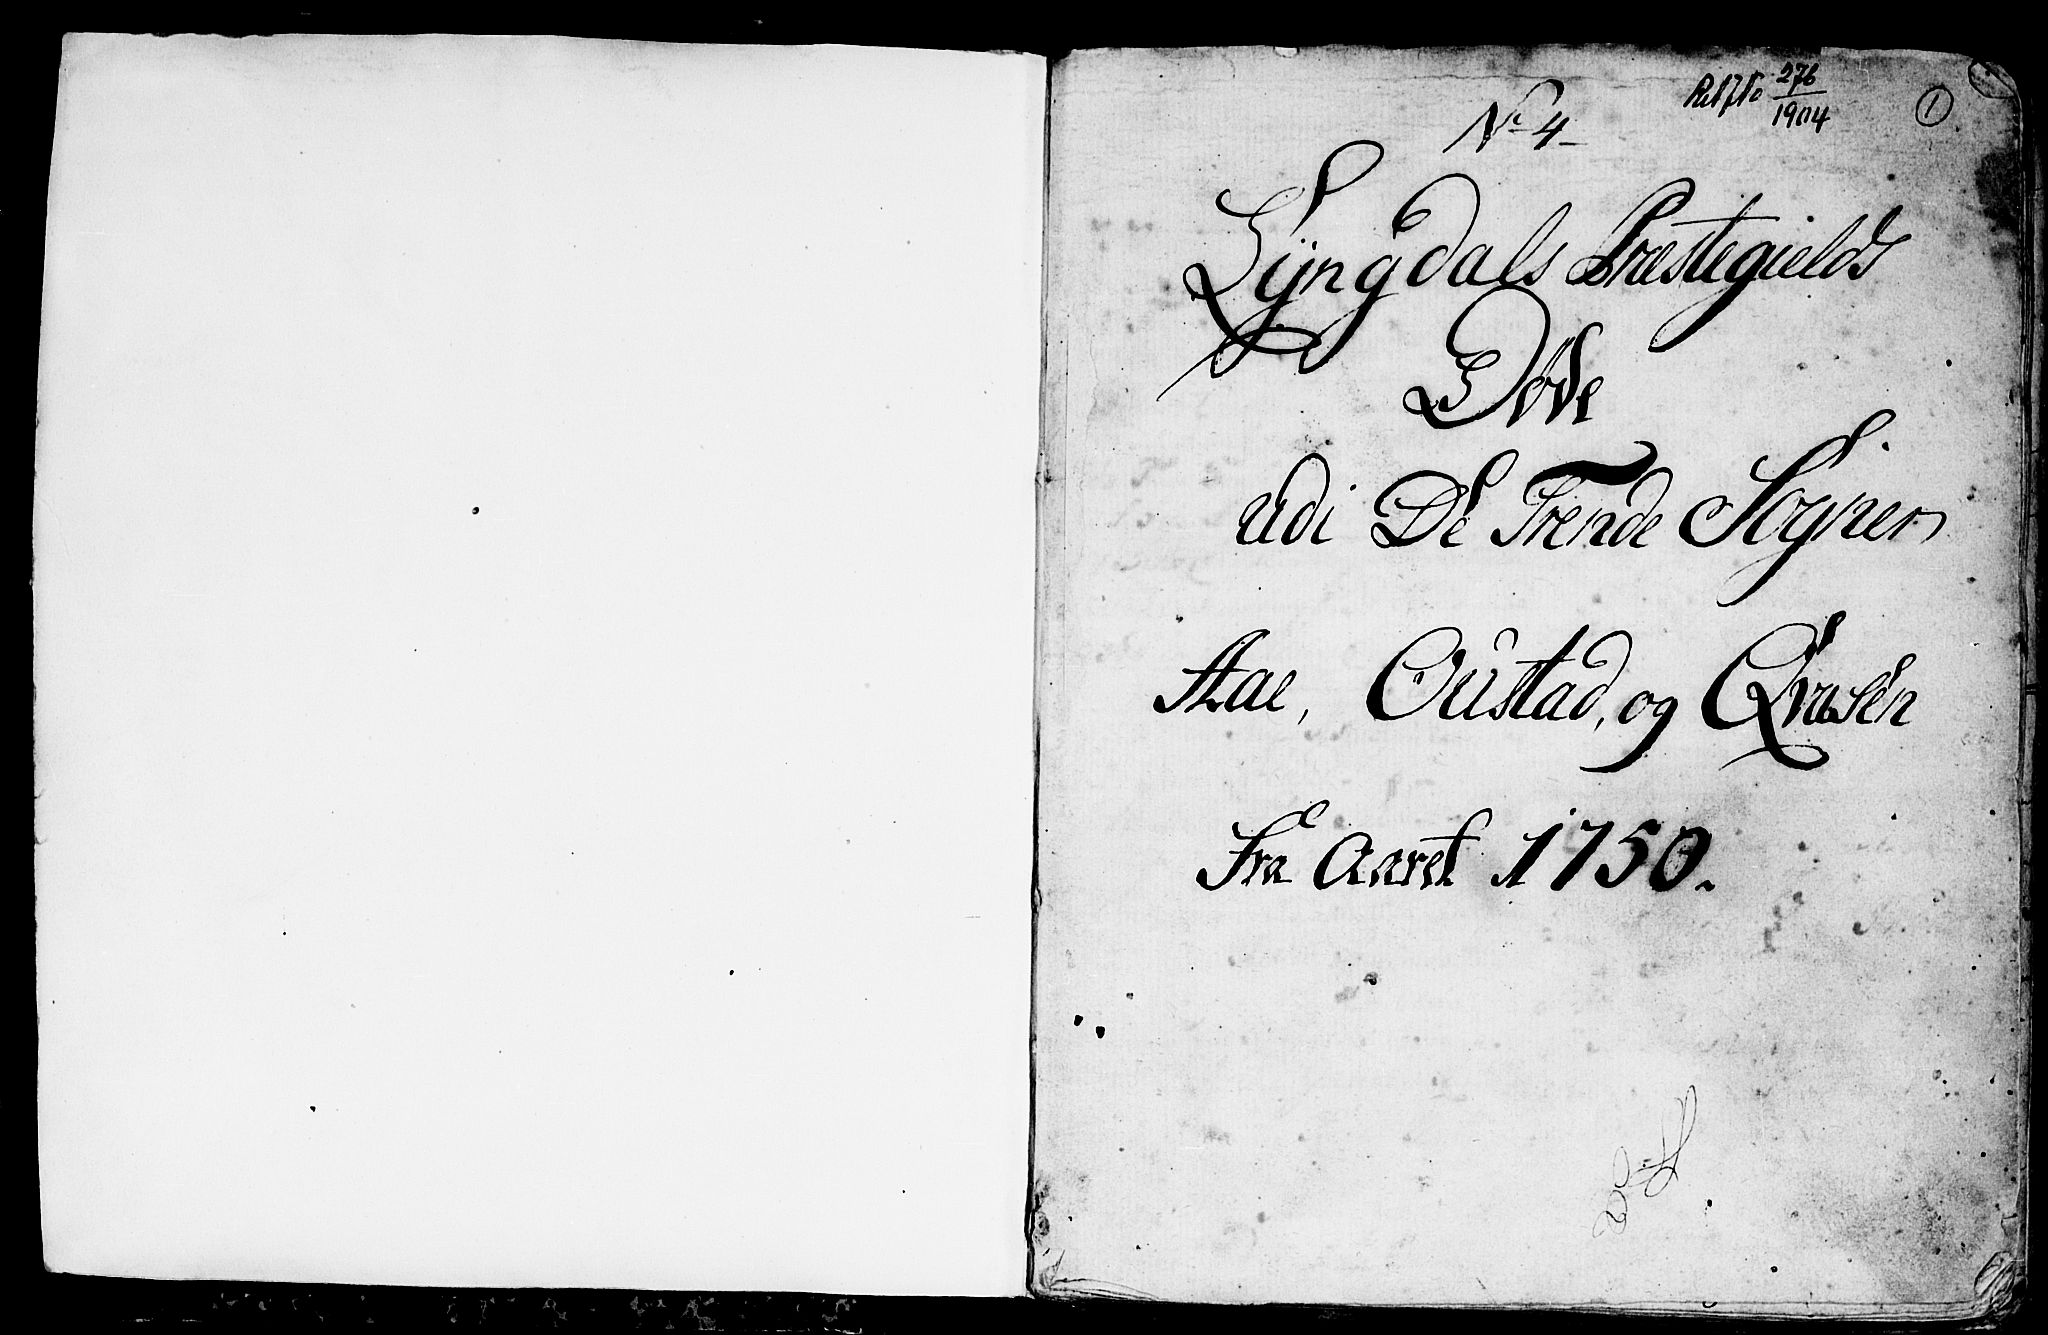 No 4
276
1904
1
Lyngdals Præstegields
Døde
udi De Trende Sogner
Aae, Oustad, og Qvasen
Fra Aaret 1750.